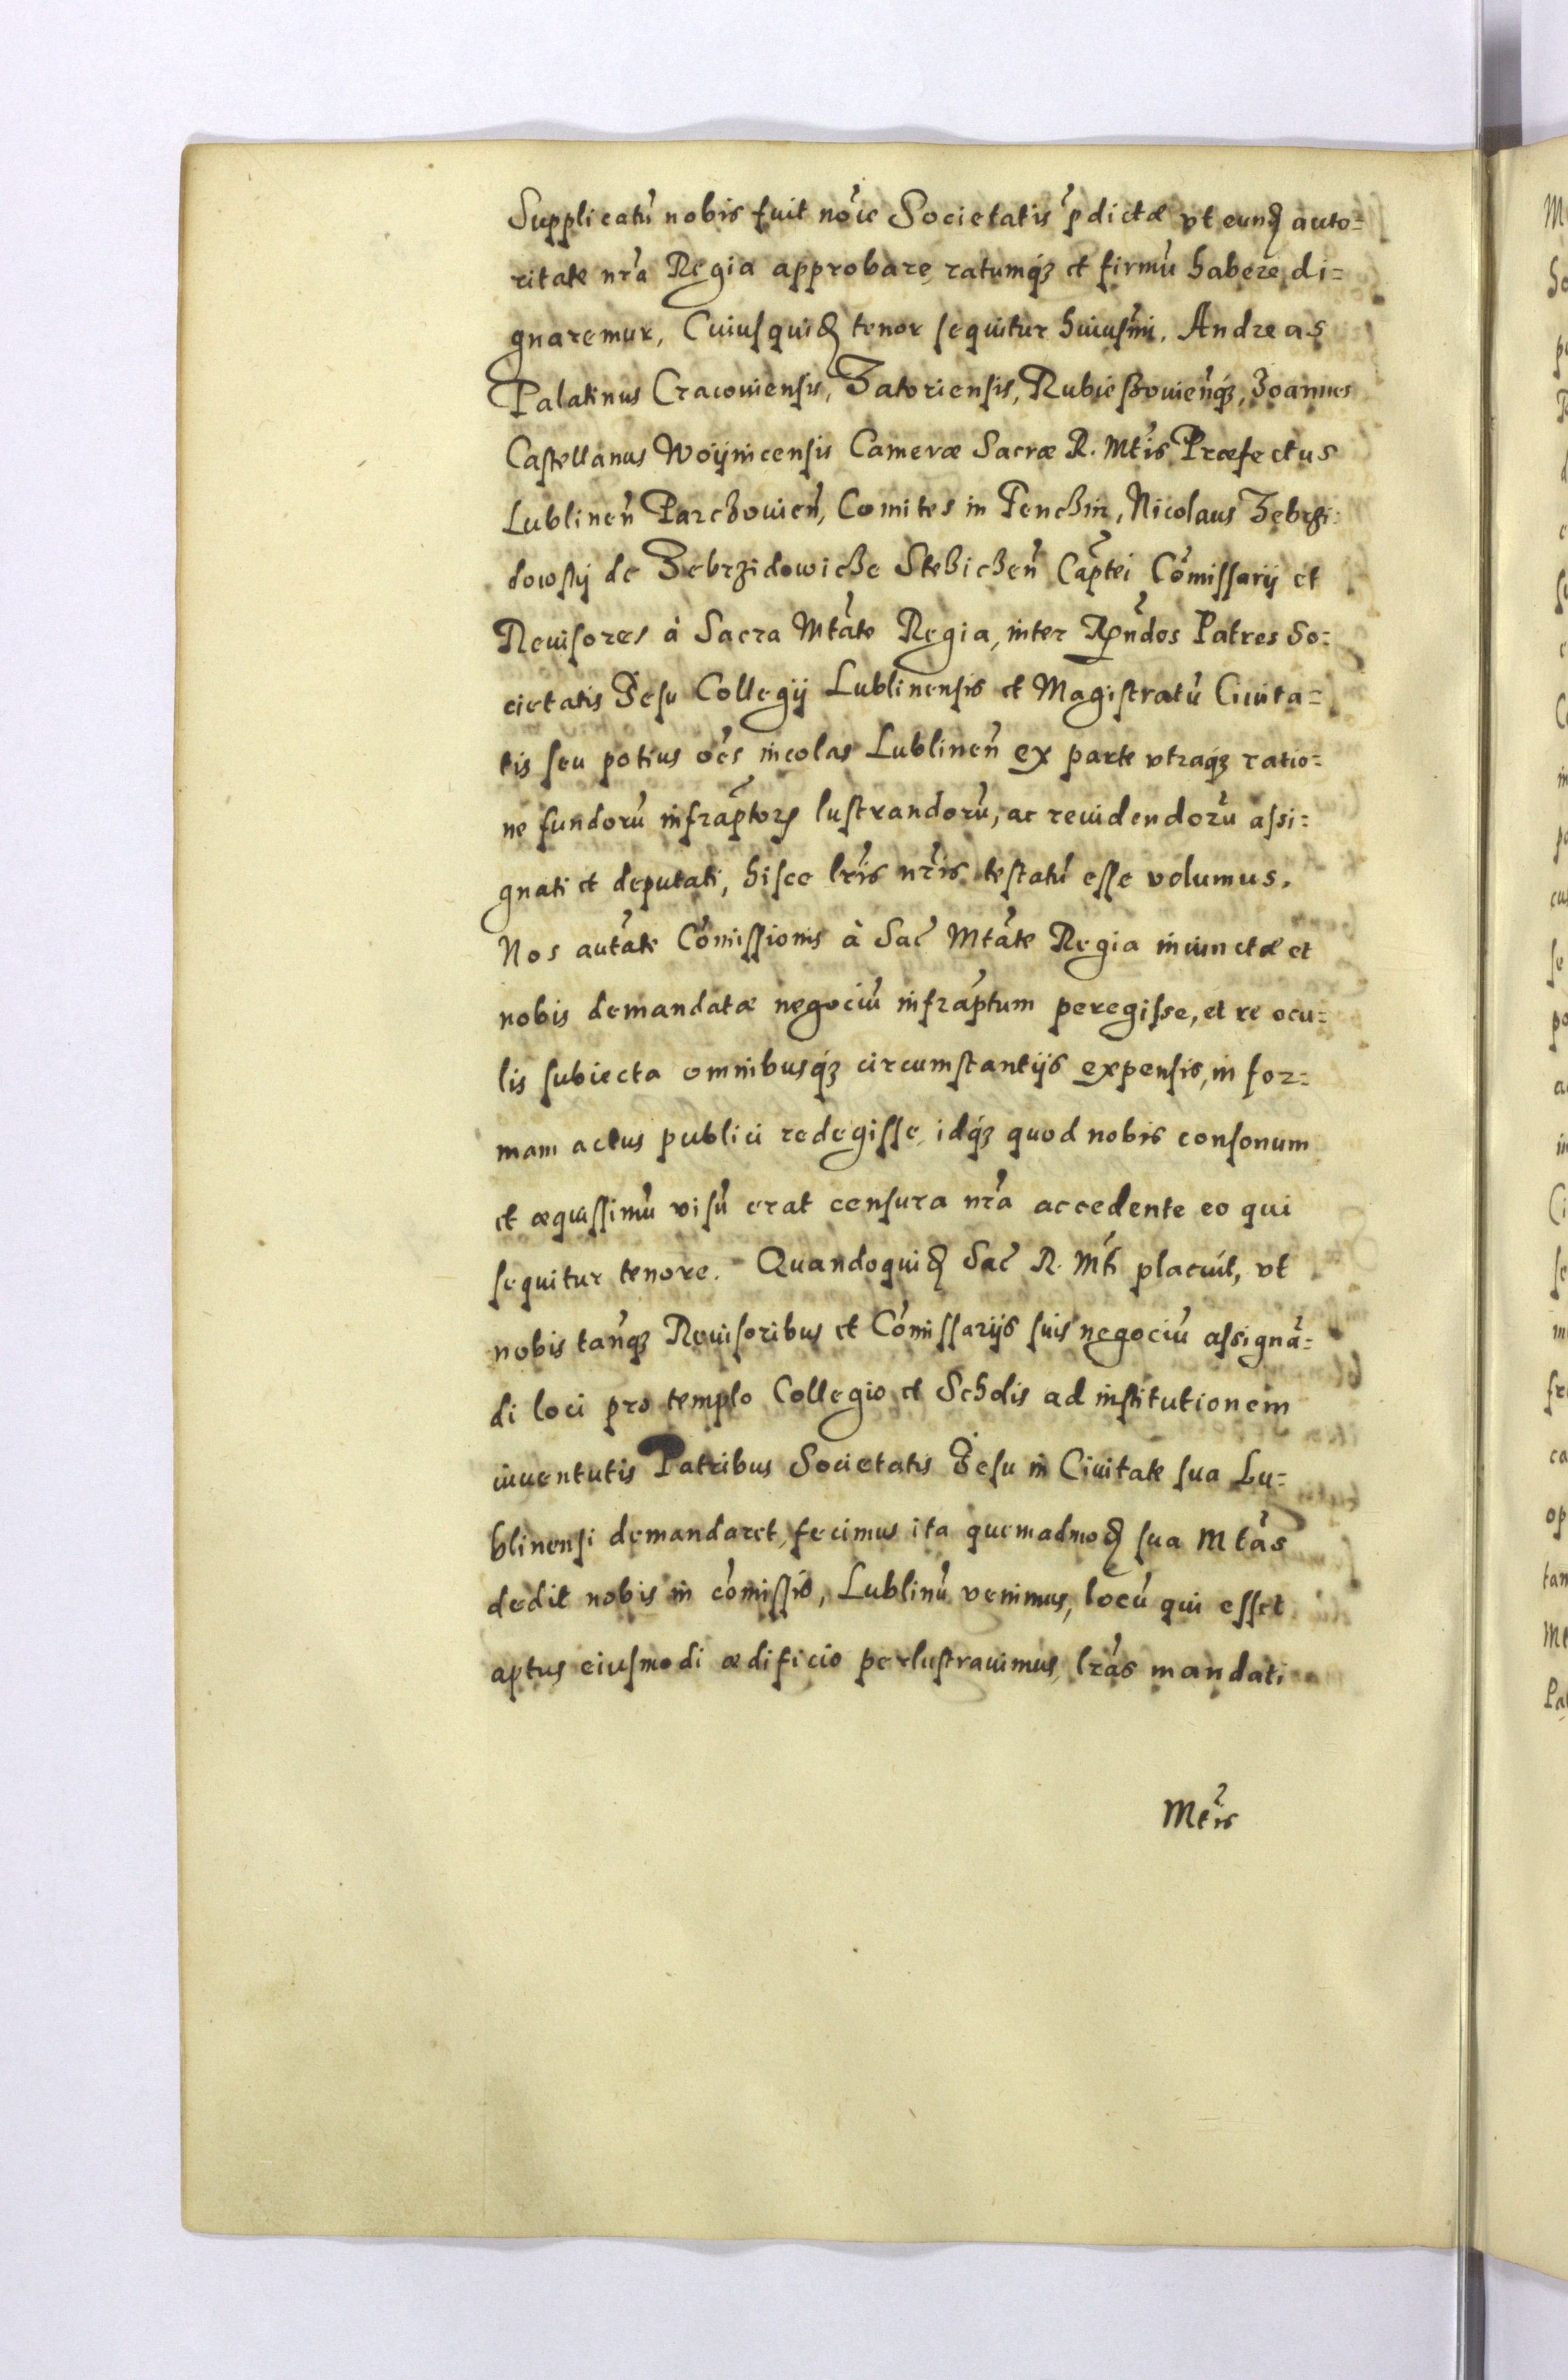 Supplicatũ nobis fuit nõie Societatis p̃dictæ vt eunꝺ auto=
ritate nr̃a Regia approbare, ratumq́ꝫ et firmũ habere, di=
gnaremur, Cuiusquiꝺ tenor sequitur huiusm̃i. Andreas
Palatinus Cracouiensis, Zatoriensis, Rubieszouien̄q́ꝫ, Joannes
Castellanus Woijnicensis Cameræ Sacræ R. Mt̃is Præfectus
Lublinen̄ Parczouien̄, Comites in Tenczin, Nicolaus Zebrzi
dowskij de Zebrzidowicze Steziczen̄ Cap̃tei Com̃issarij et
Reuisores à Sacra Mtãte Regia, inter Rp̃ndos Patres So=
cietatis Jesu Collegij Lublinensis et Magistratũ Ciuita=
tis seu potius oẽs incolas Lublinen̄ ex parte vtraq́ꝫ ratio=
ne fundorũ infrap̃torꝝ lustrandorũ, ac reuidendorũ assi=
gnati et deputati, hisce lr̃is nr̃is testatũ esse volumus.
Nos autãte Com̃issionis à Sac̃ Mtãte Regia iniunctæ et
nobis demandatæ negociũ infrap̃tum peregisse, et re ocu=
lis subiecta omnibusq́ꝫ circumstantijs expensis, in for=
mam actus publici redegisse, idq́ꝫ quod nobis consonum
et æquissimũ visũ erat censura nr̃a accedente eo qui
sequitur tenore. Quandoquiꝺ Sac̃ R. Mt̃i placuit, vt
nobis tanq̃ꝫ Reuisoribus et Com̃issarijs suis negociũ assignã=
di loci pro templo Collegio et Scholis ad institutionem
iuuentutis Patribus Societatis Jesu in Ciuitate sua Lu=
blinensi demandaret, fecimus ita quemadmoꝺ sua Mtãs
dedit nobis in com̃issis, Lublinũ venimus, locũ qui esset
aptus eiusmodi ædificio perlustrauimus, lr̃as mandati
Mt̃is